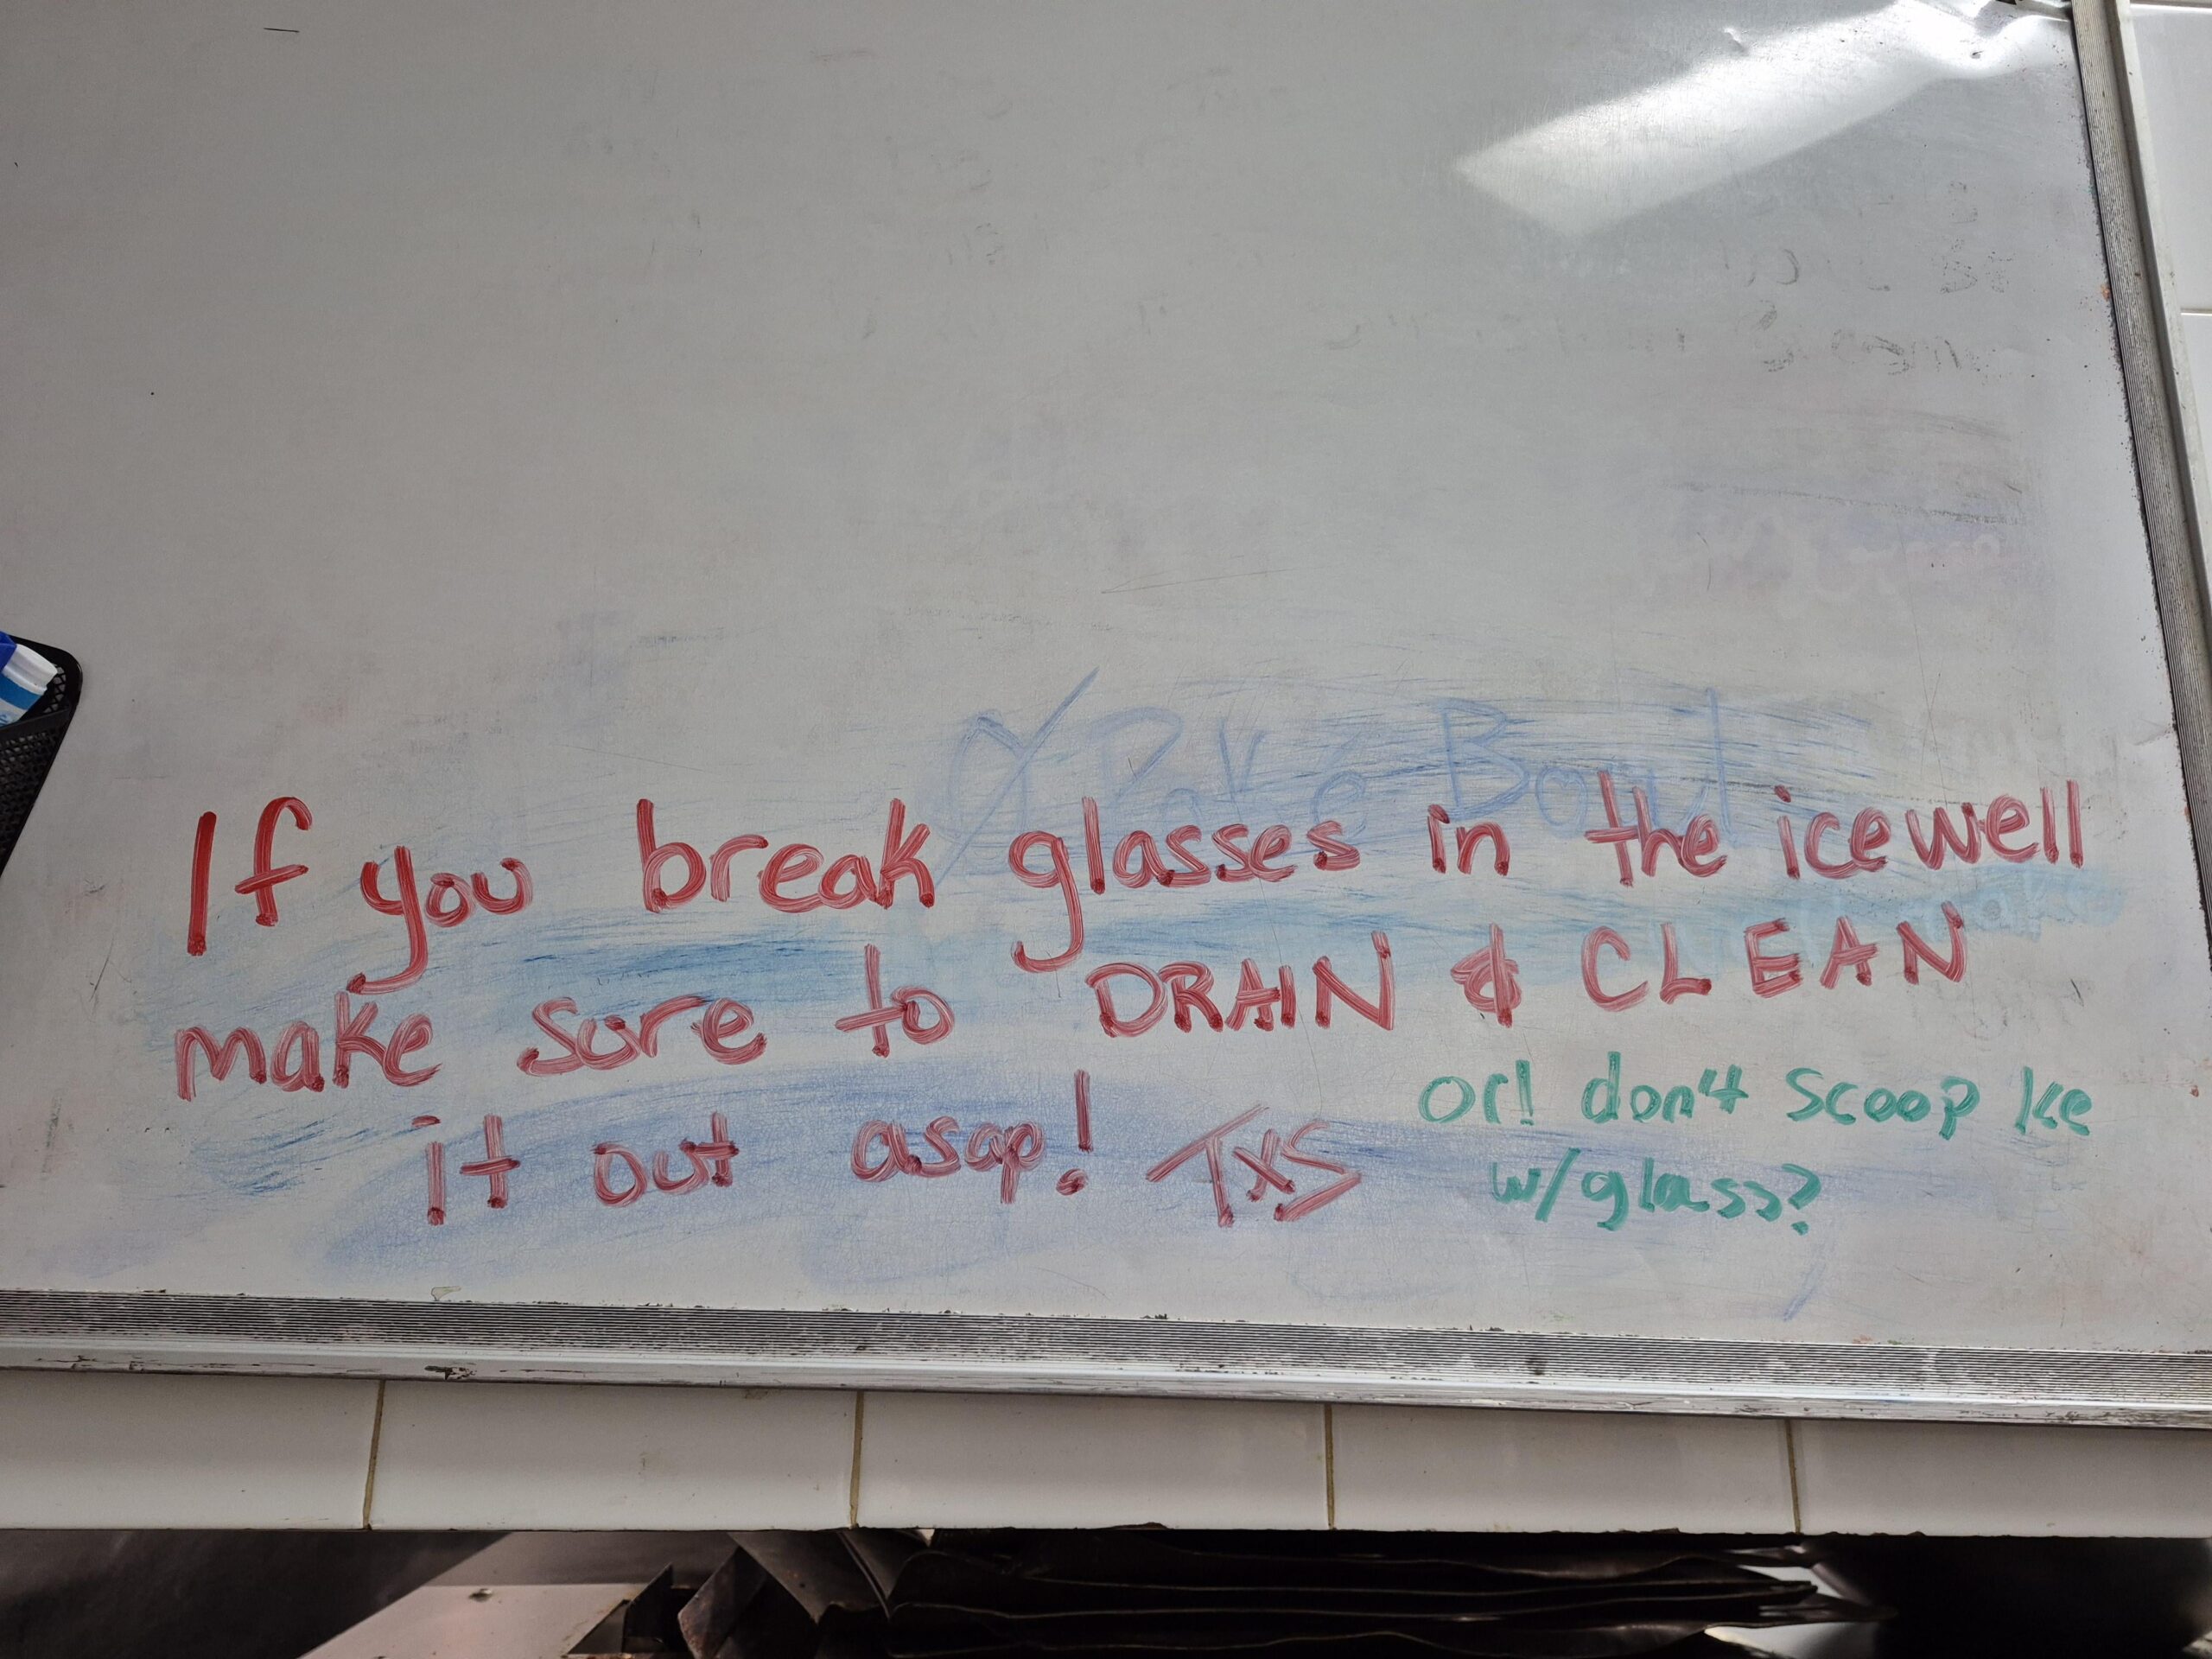 Ø Poké Bowl
If you break glasses in the icewell
make sure to DRAIN & CLEAN
it out asap! TXS
or! don't scoop Ice
w/glass?